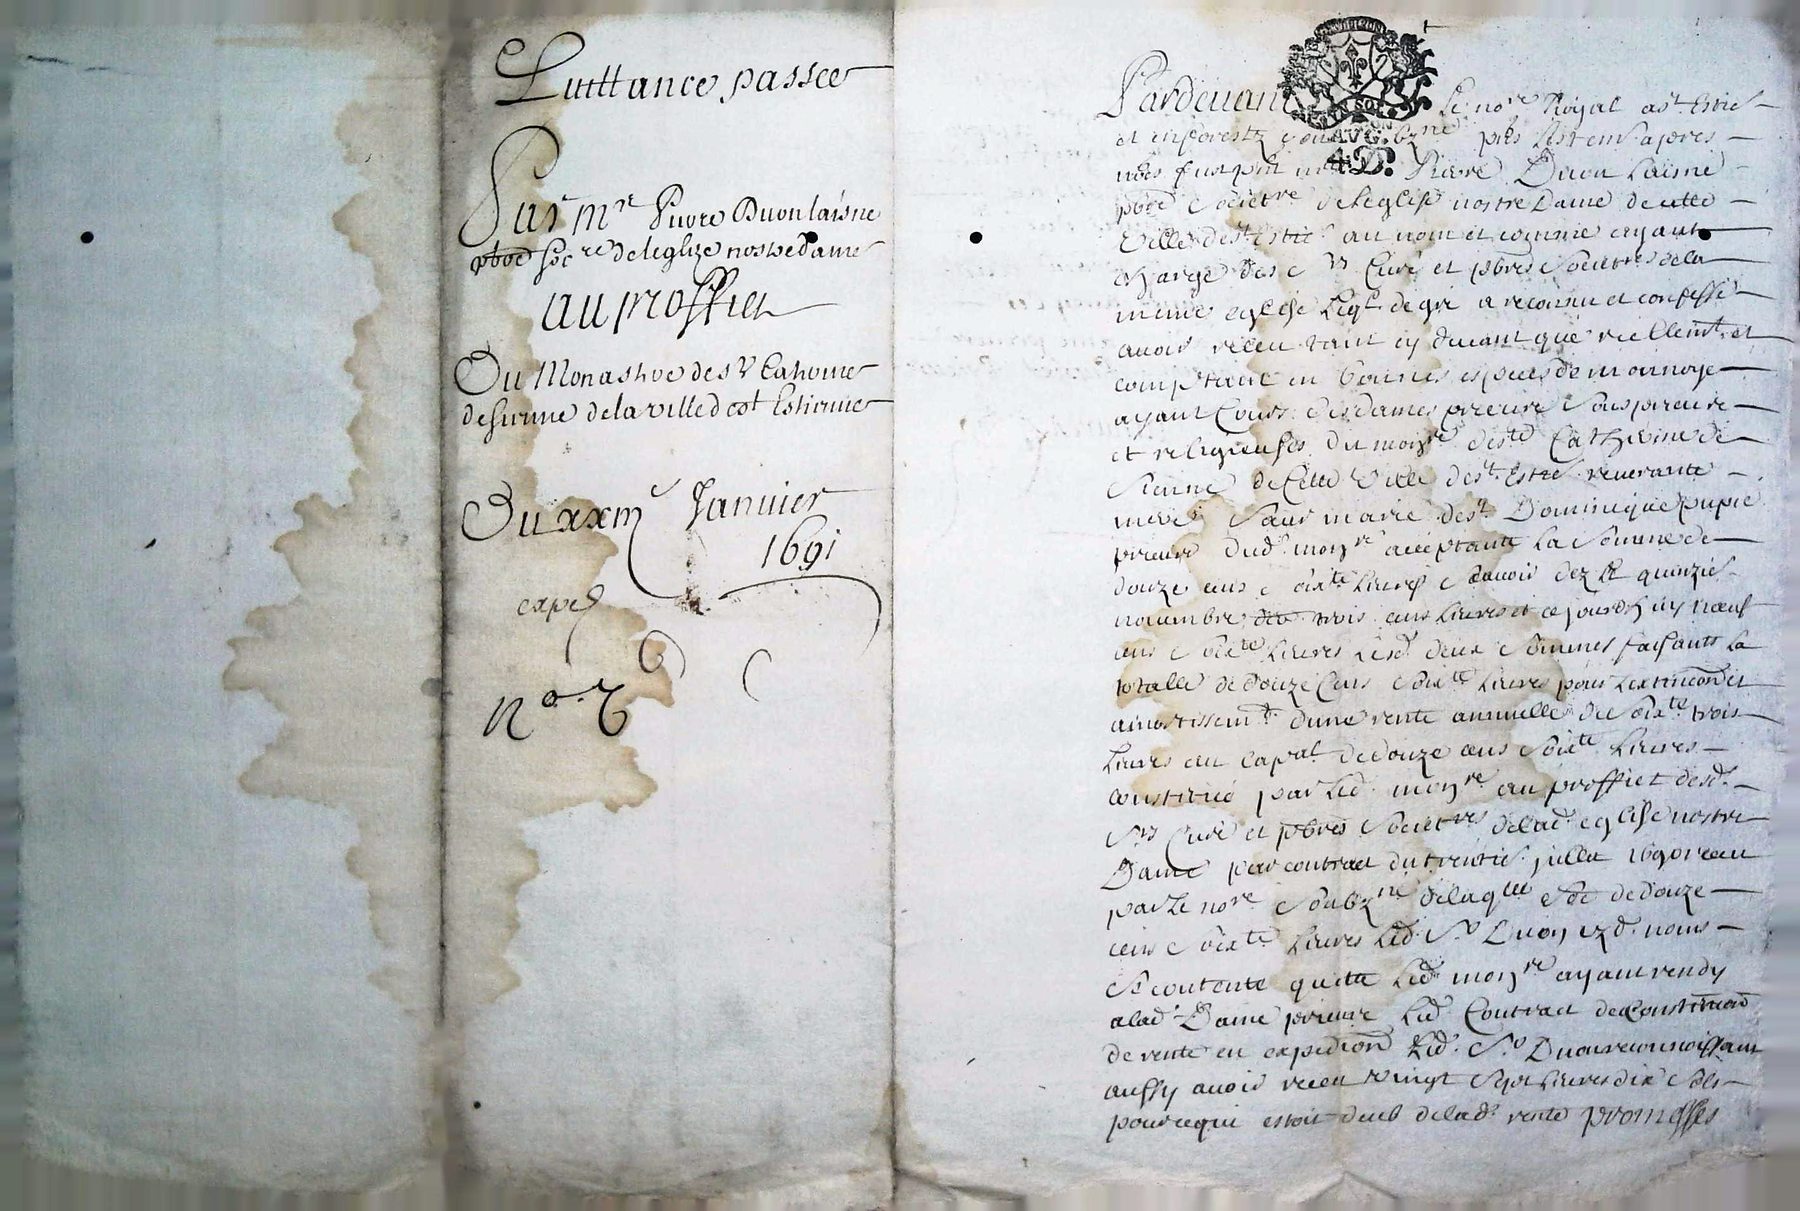 Quittance passee
Par Mre Pierre Duon laisne
pbre soc.re de leglize nostre dame
au proffict
Du Monastere de Ste Catherine
de sienne de la ville de st Estienne
Du xxiii Janvier
1691
exped
No. 7
Pardevant Le nore Royal a st Estie
et en forestz soubzne
Pierre Duon Laisne
pbre societre de leglise nostre Dame de cette
Ville de st Estie au nom et comme ayant
charge des Srs Curé et pbres Societres de la
mesme eglise Leql de gré a reconnu et confessé
avoir receu tant cy devant que réellemt et
comptant en bonnes especes de monnoye
ayant Cours des dames prieure Sousprieure
et religieuses du monre de ste Catherine de
Sienne de Cette Ville de st Estie reverante
mere Sœur marie de st Dominique pupié
prieure dud monre acceptante La Somme de
douze cens soixte Livres scavoir dez Le quinzie
novembre trois cens Livres et ce jourdhuy neuf
cens soixte Livres Lesd deux Sommes faisants La
totalle de douze Cens soixte Livres pour Lextincon et
amortissemt dune rente annuelle de soixte trois
Livres au Capal de douze cens soixte Livres
constitué par Led monre au proffict desd
Srs Curé et pbres Societres de lad eglise nostre
Dame par contract du trentie juillet 1690 receu
par Le nore Soubzne de laqlle soe de douze
cens soixte Livres Led Sr Duon ezd noms
Se contente quitte Led monre ayant rendu
a lad Dame prieure Led Contract de constituon
de rente en expedion Led Sr Duon reconnoissant
aussy avoir receu vingt sept Livres dix sols
pour ce qui estoit deub de lad rente promesses